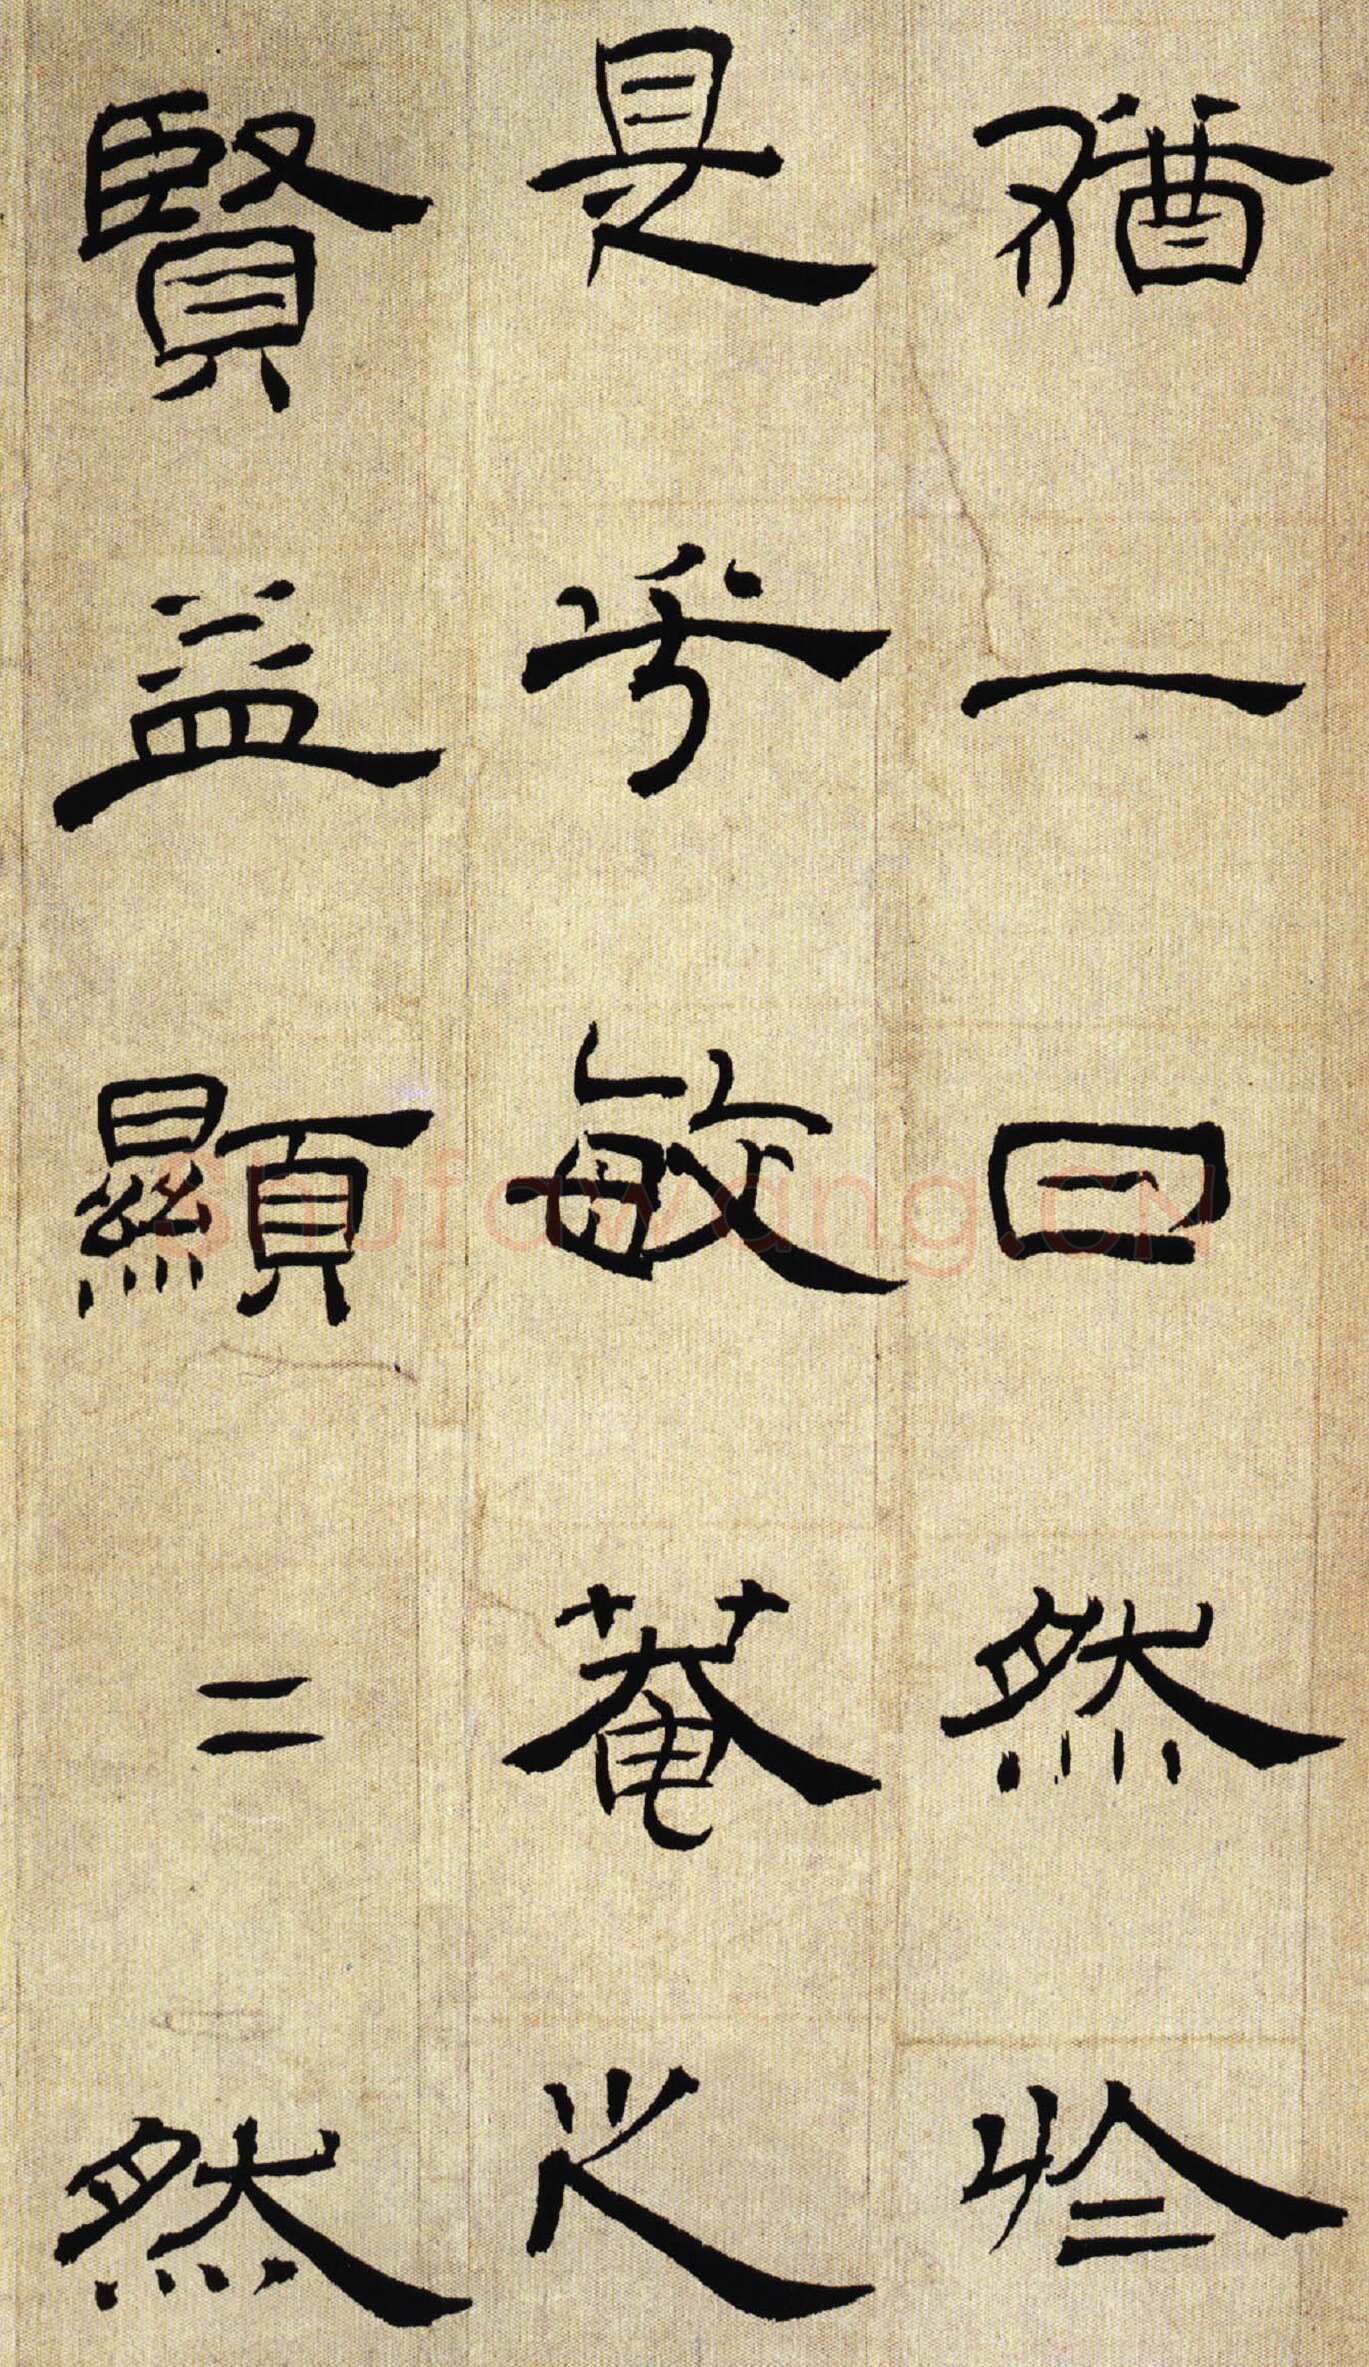 猶一日然於
是乎敏菴之
賢益顯二然
Shufawang.CN